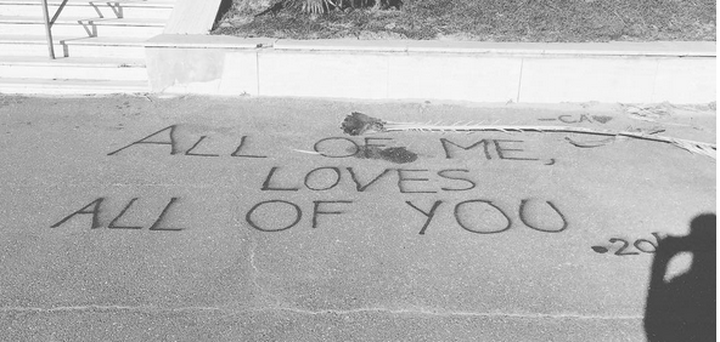 ALL OF ME,
LOVES
ALL OF YOU